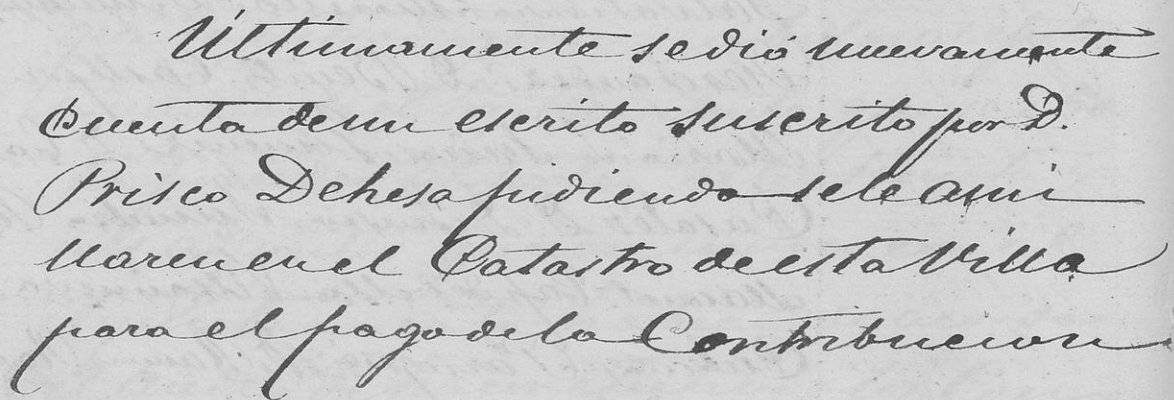 Últimamente se dió nuevamente
cuenta de un escrito suscrito por D.
Prisco Dehesa pidiendo se le ami
llaren en el Catastro de esta Villa
para el pago de la Contribucion